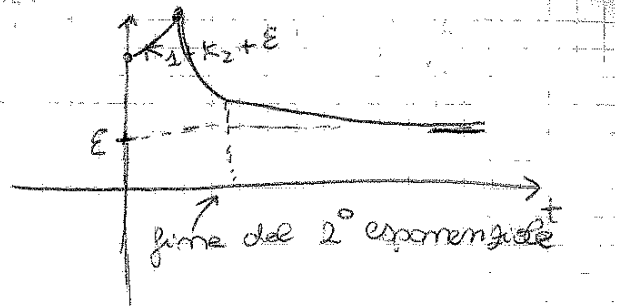 K1 + K2 + ε
ε
t
fine del 2° esponenziale